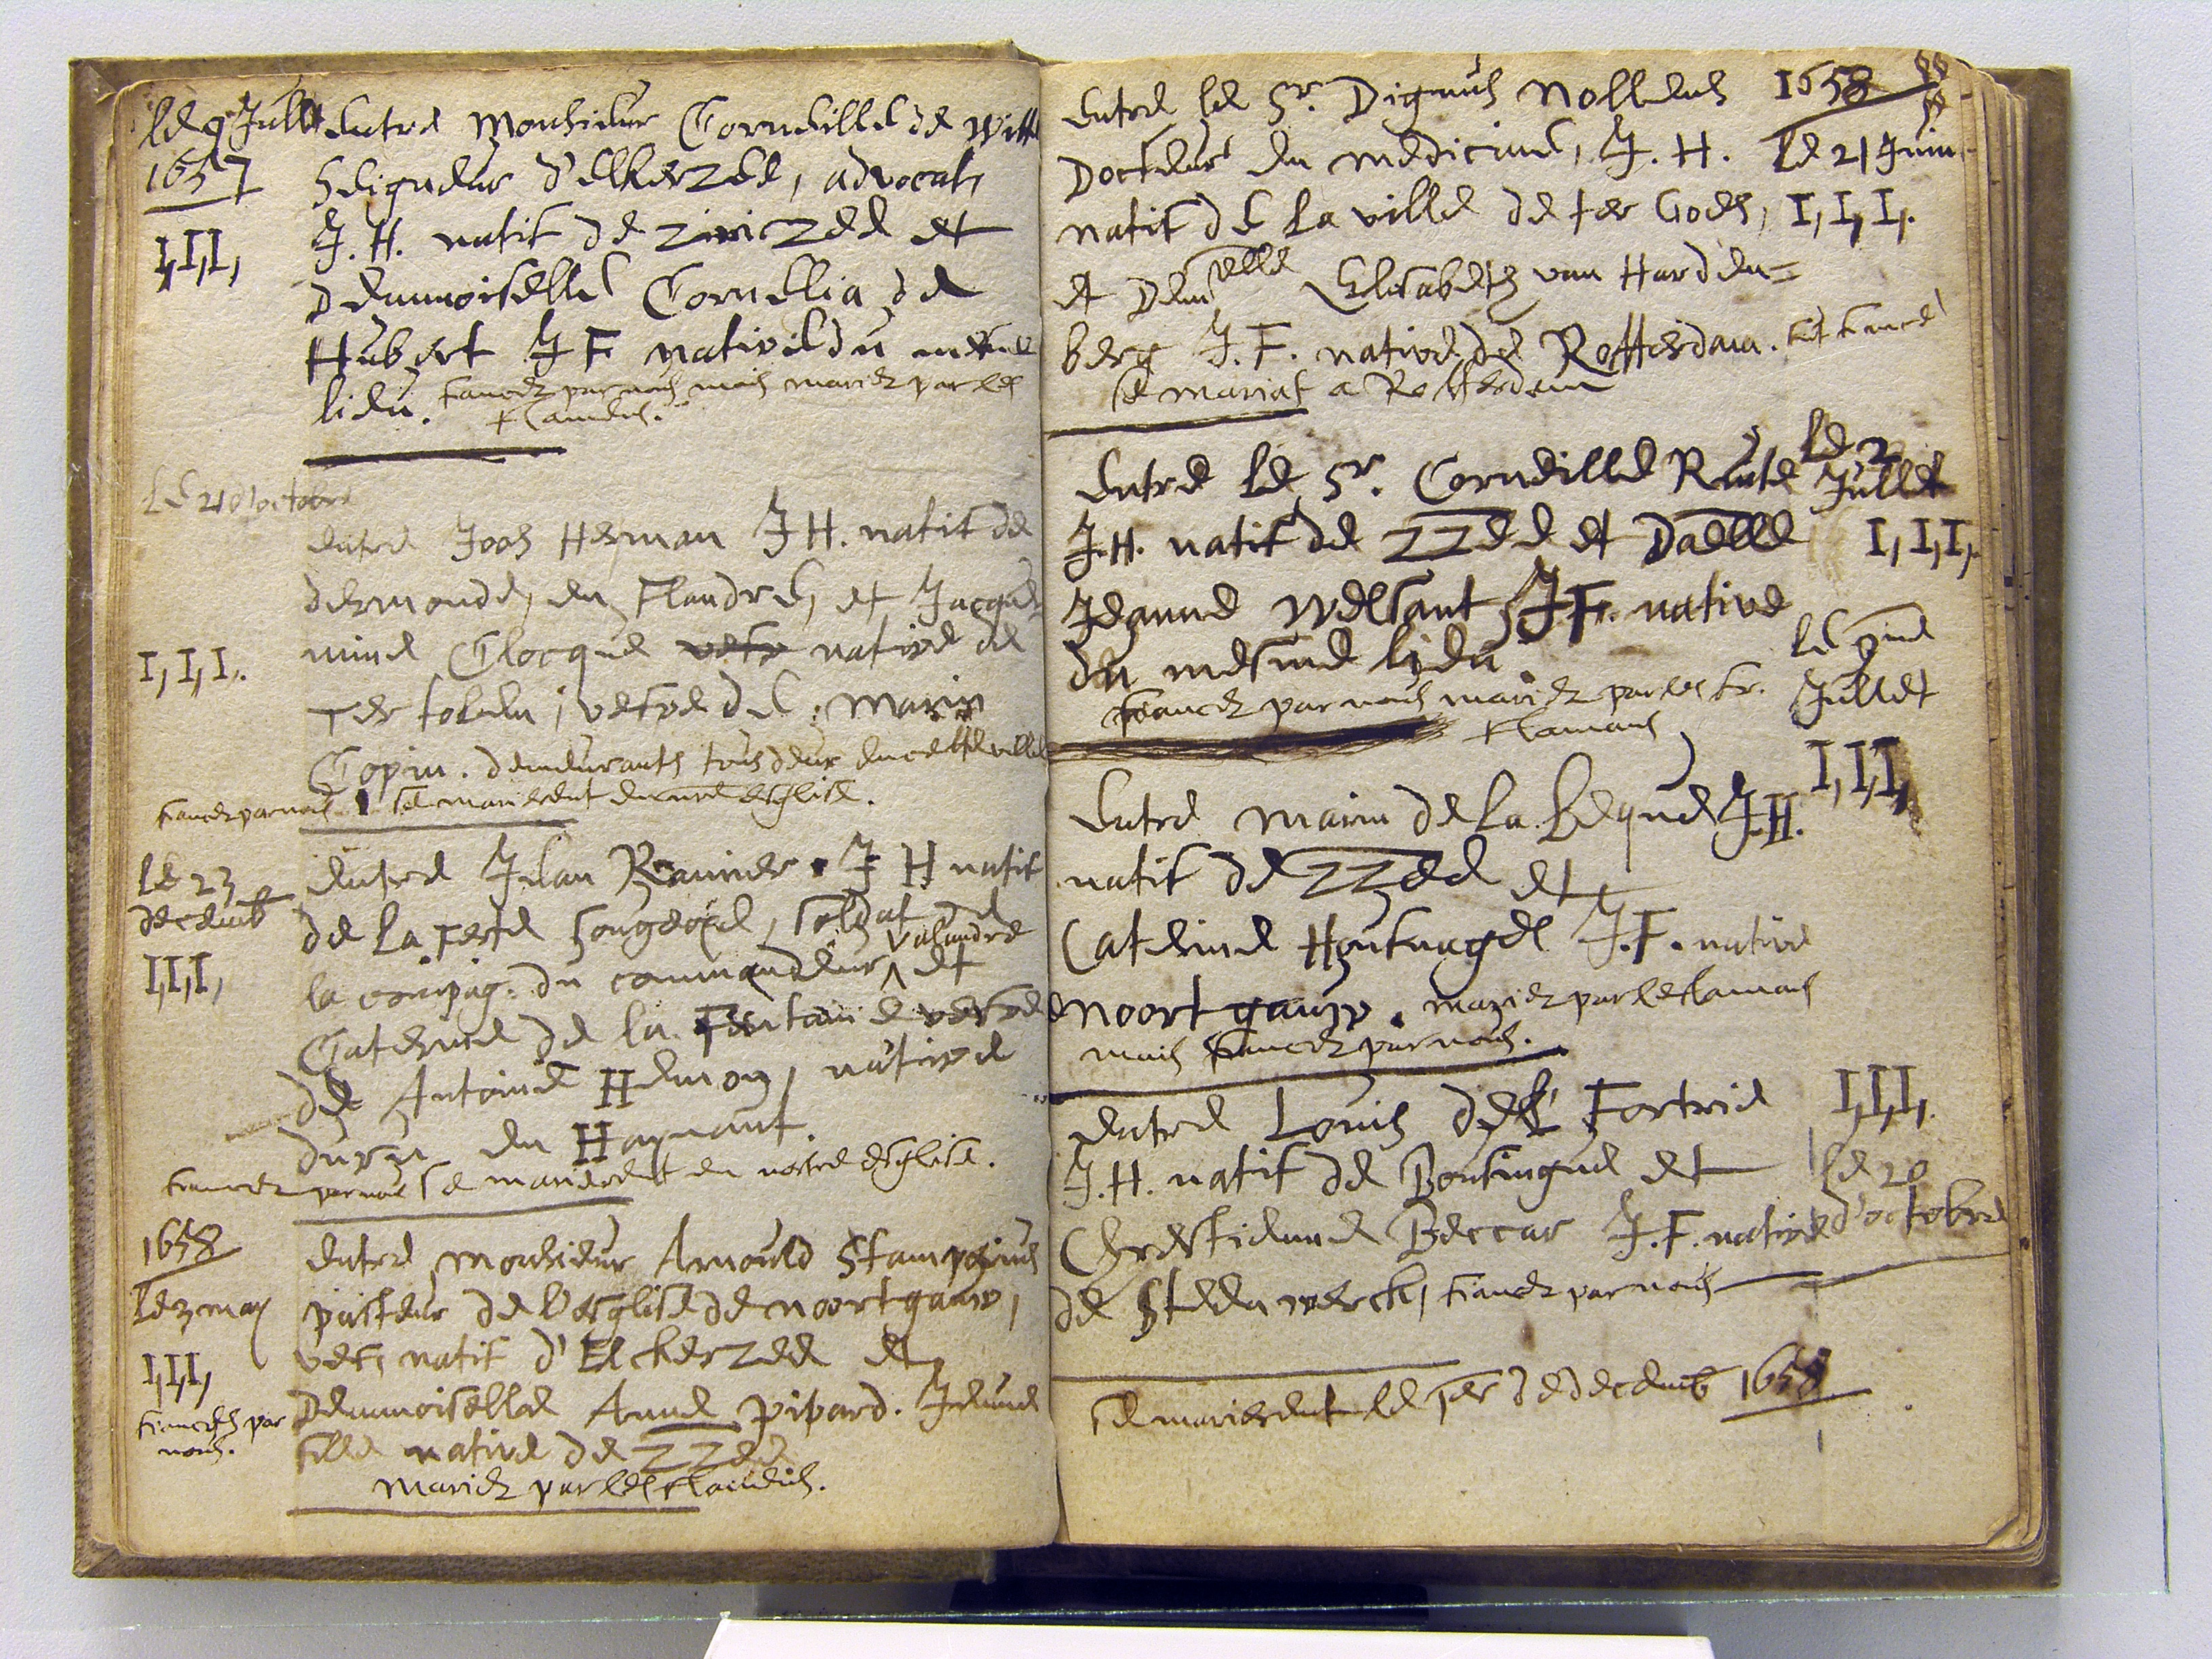 le 9 Jullet
1657
I, I, I,
Entre Monsieur Corneille de Witte
Seigneur d'Elkerzee, advocat,
J. H. natif de Ziriczee et
Demmoiselle Cornelia de
Hubert J F native du mesme
lieu. fiancez par nous mais mariez par les
Flamens.
le 21 d'octobre
I, I, I,.
Entre Joos Herman J H. natif de
dermonde, en Flandre, et Jacque
mine Clocque vefv native de
Ter tolen, vefve de Marin
Copin. demeurants tous deux en ceste ville
fiancez par nous se marierent en nre esglise.
le 23
decemb
I, I, I,
Entre Jean Rainder J H natif
de la Ferte , soldat de
la compag. du commandeur Vassandre et
Caterine de la Fontaine vefve
de Antoine Hemon, native
du en Haynaut.
fiancez par nous se marierent en nostre esglise.
1658
le 3 may
I, I, I,
fiancez par
nous.
Entre Monsieur Arnould Stampoius
pasteur de l'esglise de noortgauw,
vef, natif d'Elckerzee et
Demmoiselle Anne Pipard. Jeune
fille native de ZZee
Mariez par les Flamens.
Entre le Sr. Dignus Nollens
Docteur en medicine, J. H.
natif de la ville de ter Goes,
et Demselle Elisabeth van Harden=
berg J. F. native de Rotterdam.
se mariat a Rotterdam
1658
le 21 Juin
I, I, I,.
Entre le Sr. Corneille Rute
J.H. natif de ZZee et Daelle
Jeanne Welsant J F. native
du mesme lieu.
fiancez par nous mariez par les fr.
Flamans
le 2
Jullet
I, I, I,.
Entre Marin de la Leque J.H.
natif de ZZee et
Caterine Houtnagel J. F. native
de Noortgauw. mariez par les lamans
mais fiancez par nous.
le
Jullet
I, I, I,
Entre Louis del Fortrie
J. H. natif de Boutingue et
Chrestienne Beccar J. F. native
de Steenwerck, fiancez par nous
I, I, I,.
le 20
d'octobre
se marierent le 1er de decemb 1658